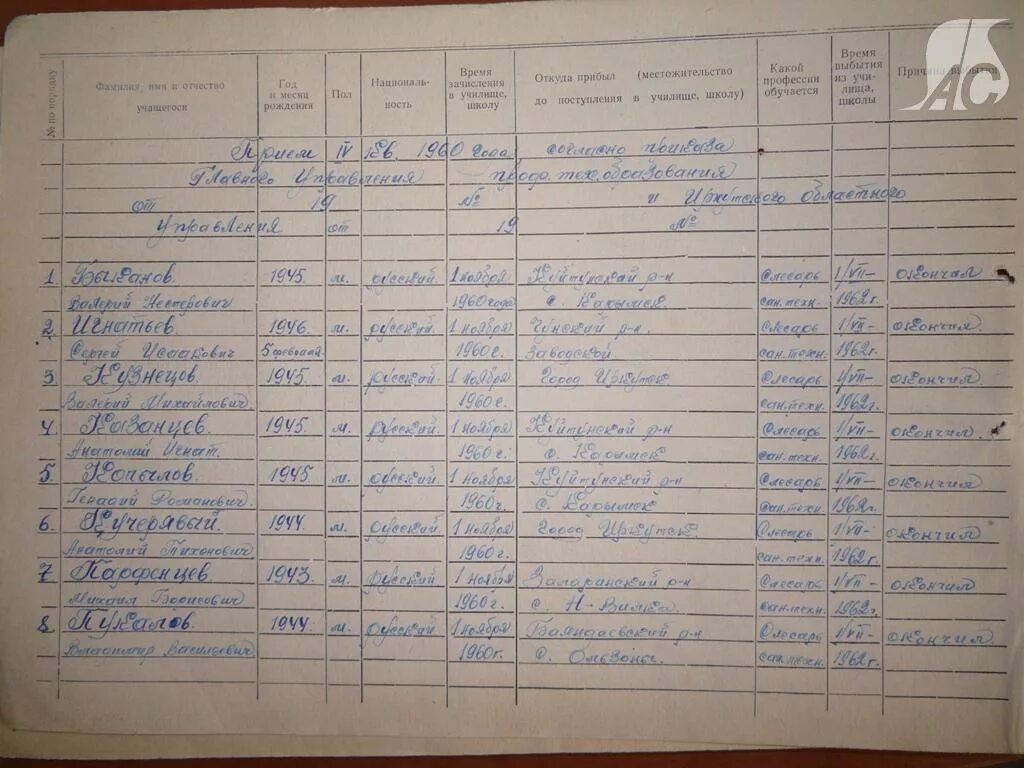 АС
№ по порядку Фамилия, имя и отчество учащегося Год и месяц рождения Пол Националь-ность Время зачисления в училище, школу Откуда прибыл (местожительство до поступления в училище, школу) Какой профессии обучается Время выбытия из учи-лища, школы Причина выбытия
Прием IV кв. 1960 года согласно приказа
Главного Управления проф. тех. образования
от 19 № и Иркутского областного
Управления от 19 №
1. Быканов. 1945. м. русский. 1 ноября Куйтунский р-н Слесарь 1/VII- окончил
Валерий Нестерович 1960 года с. Карымск. сан.техн. 1962 г.
2. Игнатьев. 1946. м. русский. 1 ноября р-н. слесарь 1/VII- окончил.
Сергей Исаакович 5 февраля 1960 г. Заводской. сан.техн. 1962 г.
3. Кузнецов. 1945. м. русский. 1 ноября Город Иркутск Слесарь 1/VII- окончил.
Валерий Михайлович. 1960 г. сан.техн. 1962 г.
4. Казанцев. 1945. м. русский. 1 ноября Куйтунский р-н Слесарь 1/VII- окончил.
Анатолий Игнат. 1960 г. с. Карымск сан.техн. 1962 г.
5. Копылов. 1945 м. русский. 1 ноября Куйтунский р-н Слесарь 1/VII- окончил
Генадий Романович. 1960 г. с. Карымск сан.техн. 1962 г.
6. Кучерявый. 1944. м. русский. 1 ноября Город Иркутск Слесарь 1/VII- окончил
Анатолий Тихонович 1960 г. сан.техн. 1962 г.
7 Парфенцев. 1943. м. русский 1 ноября Заларинский р-н Слесарь 1/VII- окончил
Михаил Борисович 1960 г. с. сан.техн. 1962 г.
8 Пукалов. 1944. м. русский 1 ноября Баяндаевский р-н Слесарь 1/VII- окончил.
Владимир Васильевич. 1960 г. с. Ользоны. сан.техн. 1962 г.